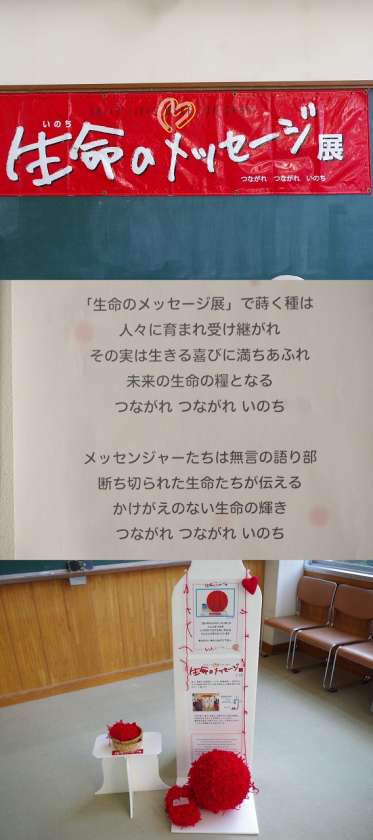 いのち
生命のメッセージ展
つながれ つながれ いのち
「生命のメッセージ展」で蒔く種は
人々に育まれ受け継がれ
その実は生きる喜びに満ちあふれ
未来の生命の糧となる
つながれ つながれ いのち
メッセンジャーたちは無言の語り部
断ち切られた生命たちが伝える
かけがえのない生命の輝き
つながれ つながれ いのち
生命のメッセージ展